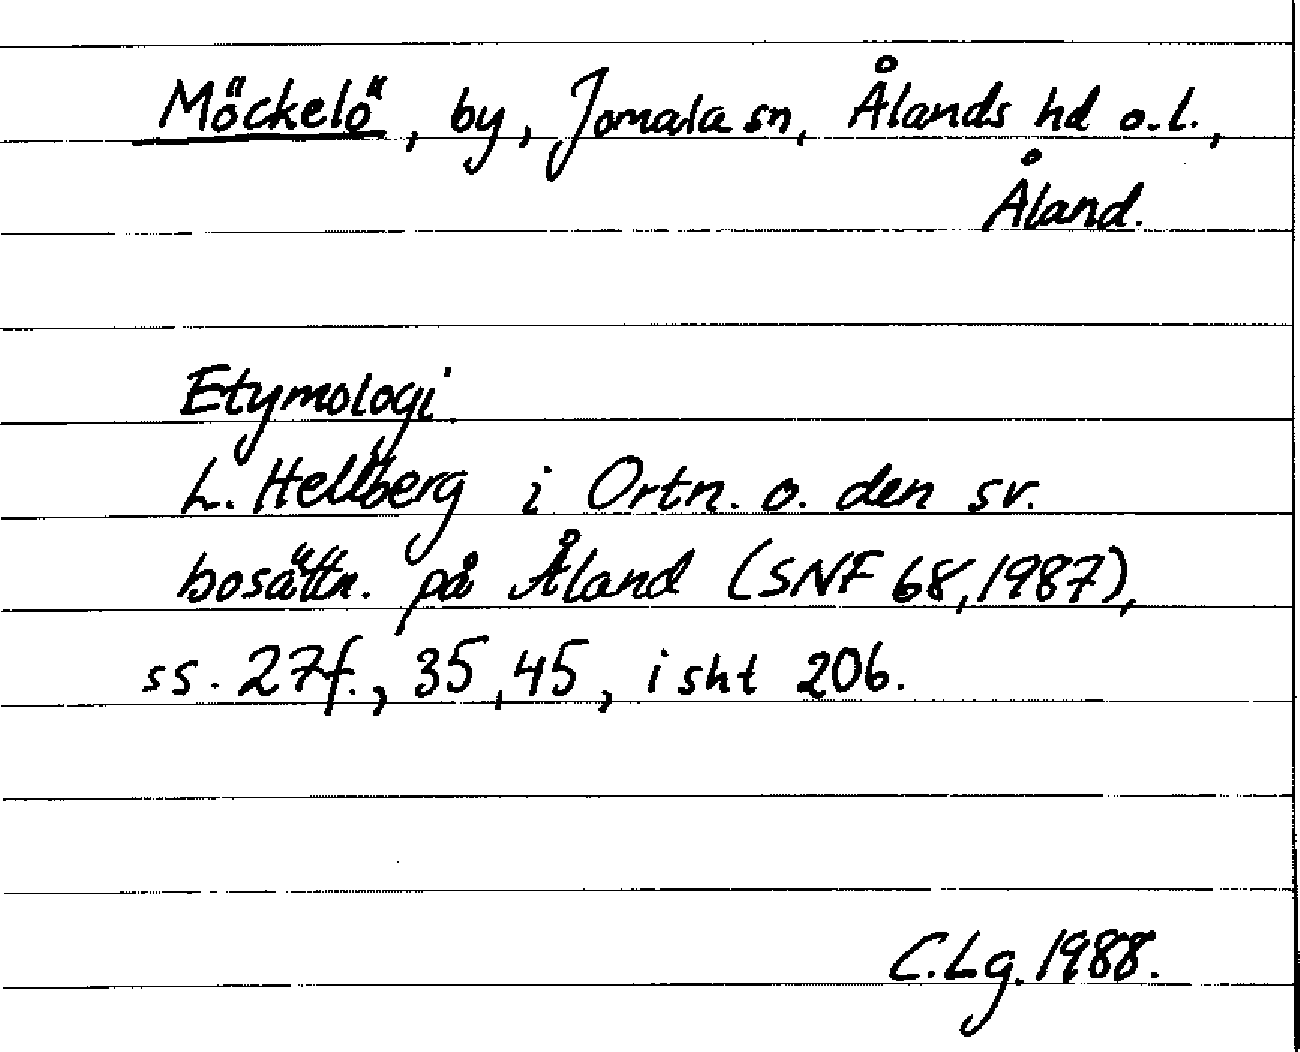 Möckelö, by, Jomala sn, Ålands hd o.l.,
Åland.
Etymologi.
L. Hellberg i Ortn. o. den sv.
bosättn. på Åland (SNF 68, 1987),
ss. 27f., 35, 45, i sht 206.
C.Lg. 1988.